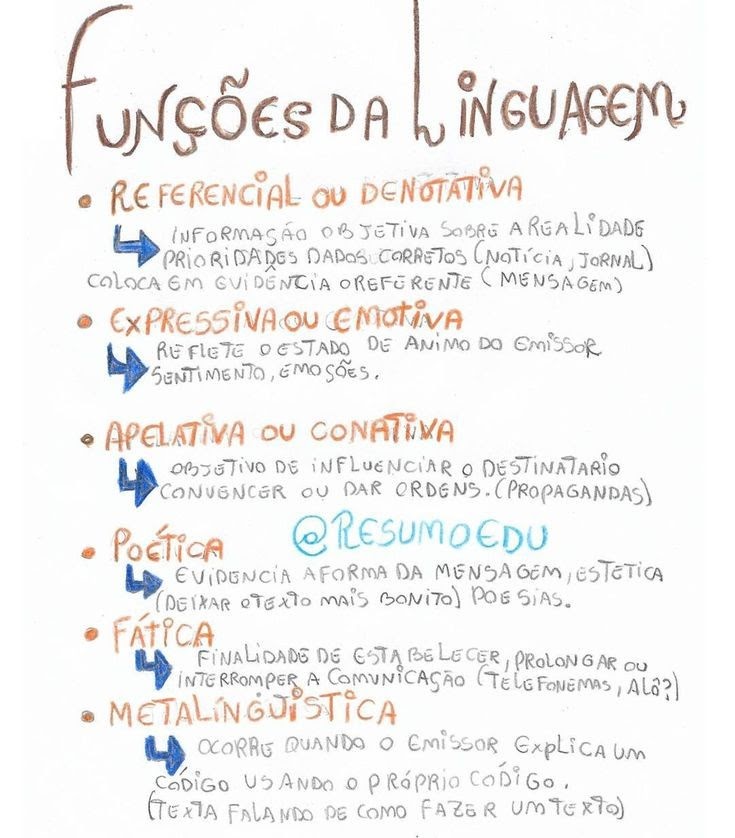 FUNÇÕES DA LINGUAGEM
• REFERENCIAL OU DENOTATIVA
INFORMAÇÃO OBJETIVA SOBRE A REALIDADE
PRIORIDADES DADOS CORRETOS (NOTÍCIA, JORNAL)
COLOCA EM EVIDÊNCIA O REFERENTE (MENSAGEM)
• EXPRESSIVA OU EMOTIVA
REFLETE O ESTADO DE ANIMO DO EMISSOR
SENTIMENTO, EMOÇÕES.
• APELATIVA OU CONATIVA
OBJETIVO DE INFLUENCIAR O DESTINATARIO
CONVENCER OU DAR ORDENS. (PROPAGANDAS)
@RESUMOEDU
• POÉTICA
EVIDENCIA A FORMA DA MENSAGEM, ESTETICA
(DEIXAR O TEXTO MAIS BONITO) POESIAS.
• FÁTICA
FINALIDADE DE ESTABELECER, PROLONGAR OU
INTERROMPER A COMUNICAÇÃO (TELEFONEMAS, ALÔ?)
• METALÍNGUÍSTICA
OCORRE QUANDO O EMISSOR EXPLICA UM
CÓDIGO USANDO O PRÓPRIO CÓDIGO.
(TEXTA FALANDO DE COMO FAZER UM TEXTO)